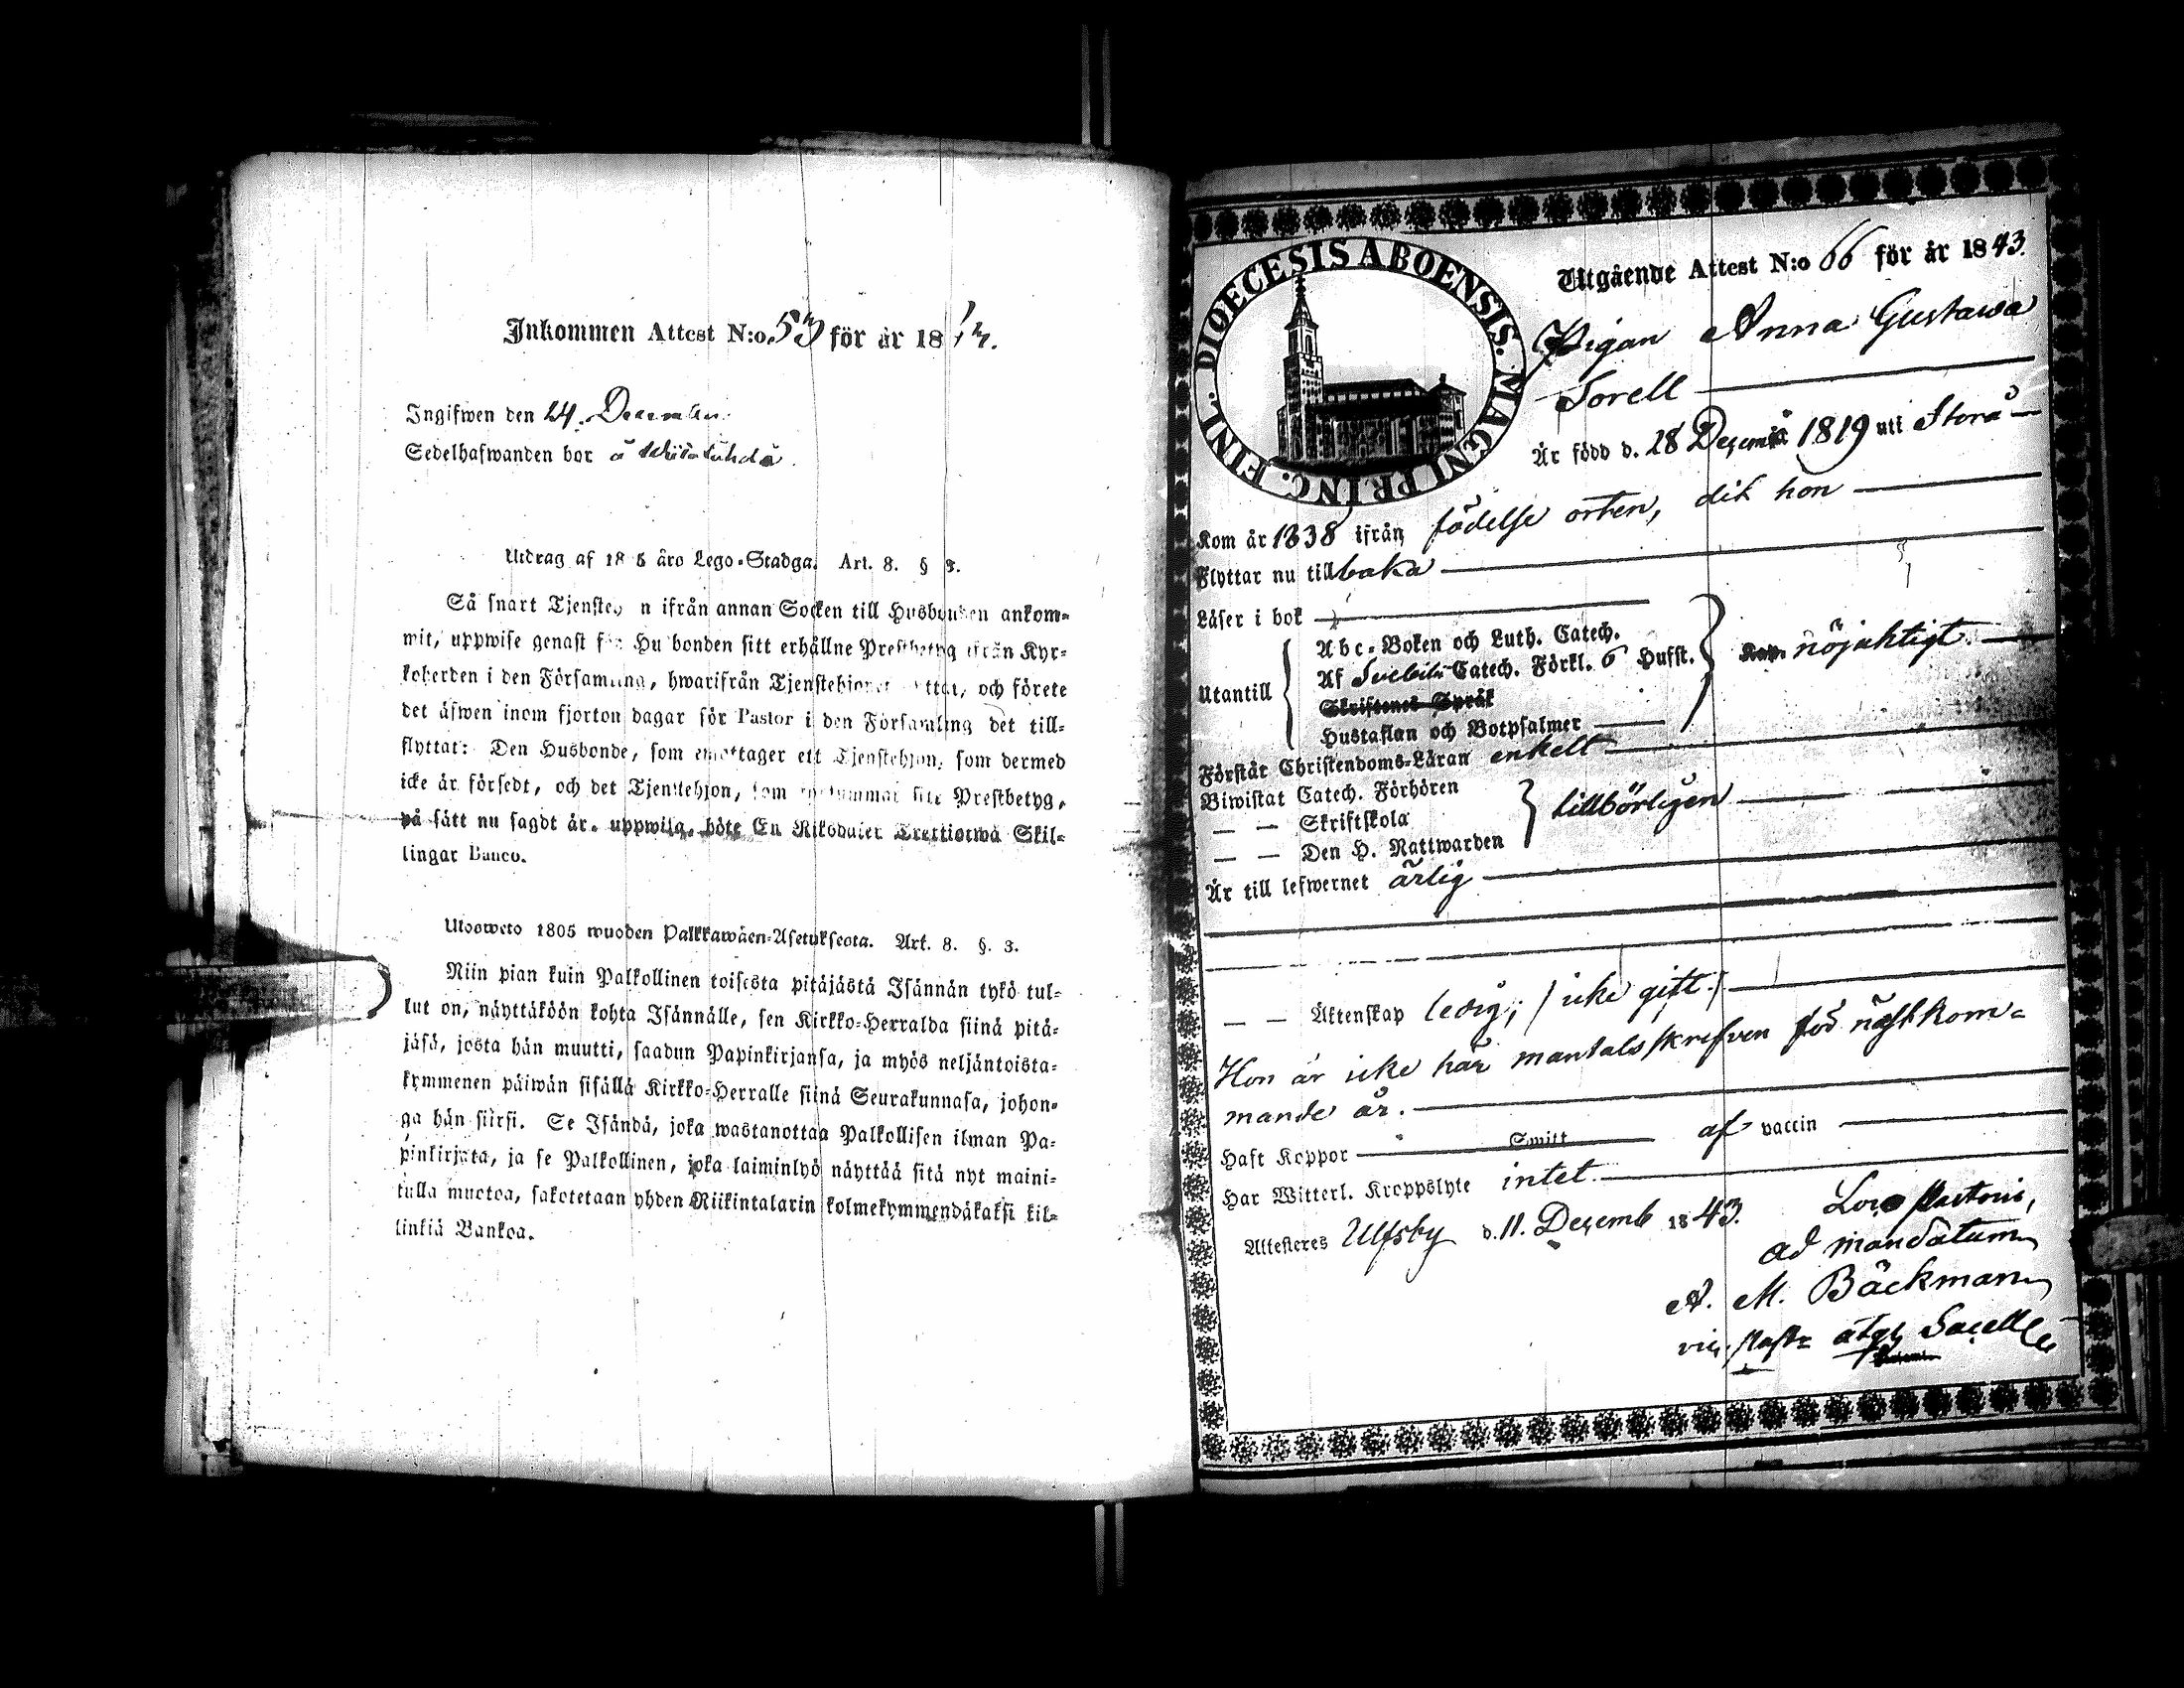 Inkommen Attest N:o 53 för år 18
Ingifwen den 24. December
Sedelhafwanden bor å
Utdrag af 18 5 åro Lego-Stadga. Art. 8. § 3.
Så snart Tjenste n ifrån annan Socken till Husbonden ankom-
mit, uppwise genast för Hu bonden sitt erhållne Prestbetyg ifrån Kyr-
koherden i den Församling, hwarifrån Tjenstehjonet ttat, och förete
det äfwen inom fjorton dagar för Pastor i den Församling det till-
flyttat: Den Husbonde, som emottager ett Tjenstehjon, som dermed
icke är försedt, och det Tjenstehjon, som sitt Prestbetyg,
på sätt nu sagdt är, uppwisa, böte En Riksdaler Trettiotwå Skil-
lingar Banco.
Ulosweto 1805 wuoden Palkkawäen-Asetuksesta. Art. 8. §. 3.
Niin pian kuin Palkollinen toisesta pitäjästä Isännän tykö tul-
lut on, näyttäköön kohta Isännälle, sen Kirkko-Herralda siinä pitä-
jäsä, josta hän muutti, saadun Papinkirjansa, ja myös neljäntoista-
kymmenen päiwän sisällä Kirkko-Herralle siinä Seurakunnasa, johon-
ga hän siirsi. Se Isändä, joka wastanottaa Palkollisen ilman Pa-
pinkirjata, ja se Palkollinen, joka laiminlyö näyttää sitä nyt maini-
tulla muotoa, sakotetaan yhden Riikintalarin kolmekymmendäkaksi kil-
linkiä Bankoa.
DIOECESIS ABOENSIS. MAGNI PRINC. FINL.
Utgående Attest N:o 66 för år 1843.
Pigan Anna Gustawa
Sorell
Är född d. 28 Decemb 1819 uti Storå
Kom år 1838 ifrån födelse orten, dit hon
Flyttar nu tillbaka
Läser i bok
Utantill
Abc-Boken och Luth. Catech.
Af Svebilii Catech. Förkl. 6 Hufst.
Skriftenes Språk
Hustaflan och Botpsalmer
nöjaktigt.
Förstår Christendoms-Läran enkelt
Biwistat Catech. Förhören
— — Skriftskola
— — Den H. Nattwarden
tillbörligen
Är till lefwernet ärlig
— — Äktenskap ledig; / icke gift /
Hon är icke här mantalsskrefven för nästkom-
mande år.
Haft Koppor Smitt af vaccin
Har Witterl. Kroppslyte intet.
Attesteres Ulfsby d. 11. Decemb 1843.
Loco Pastoris,
ad mandatum
A. M. Bäckman